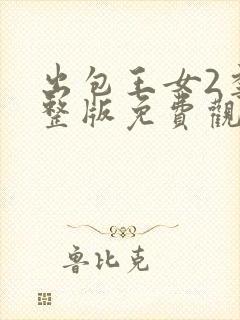 出包王女2
整版免費觀
魯比克